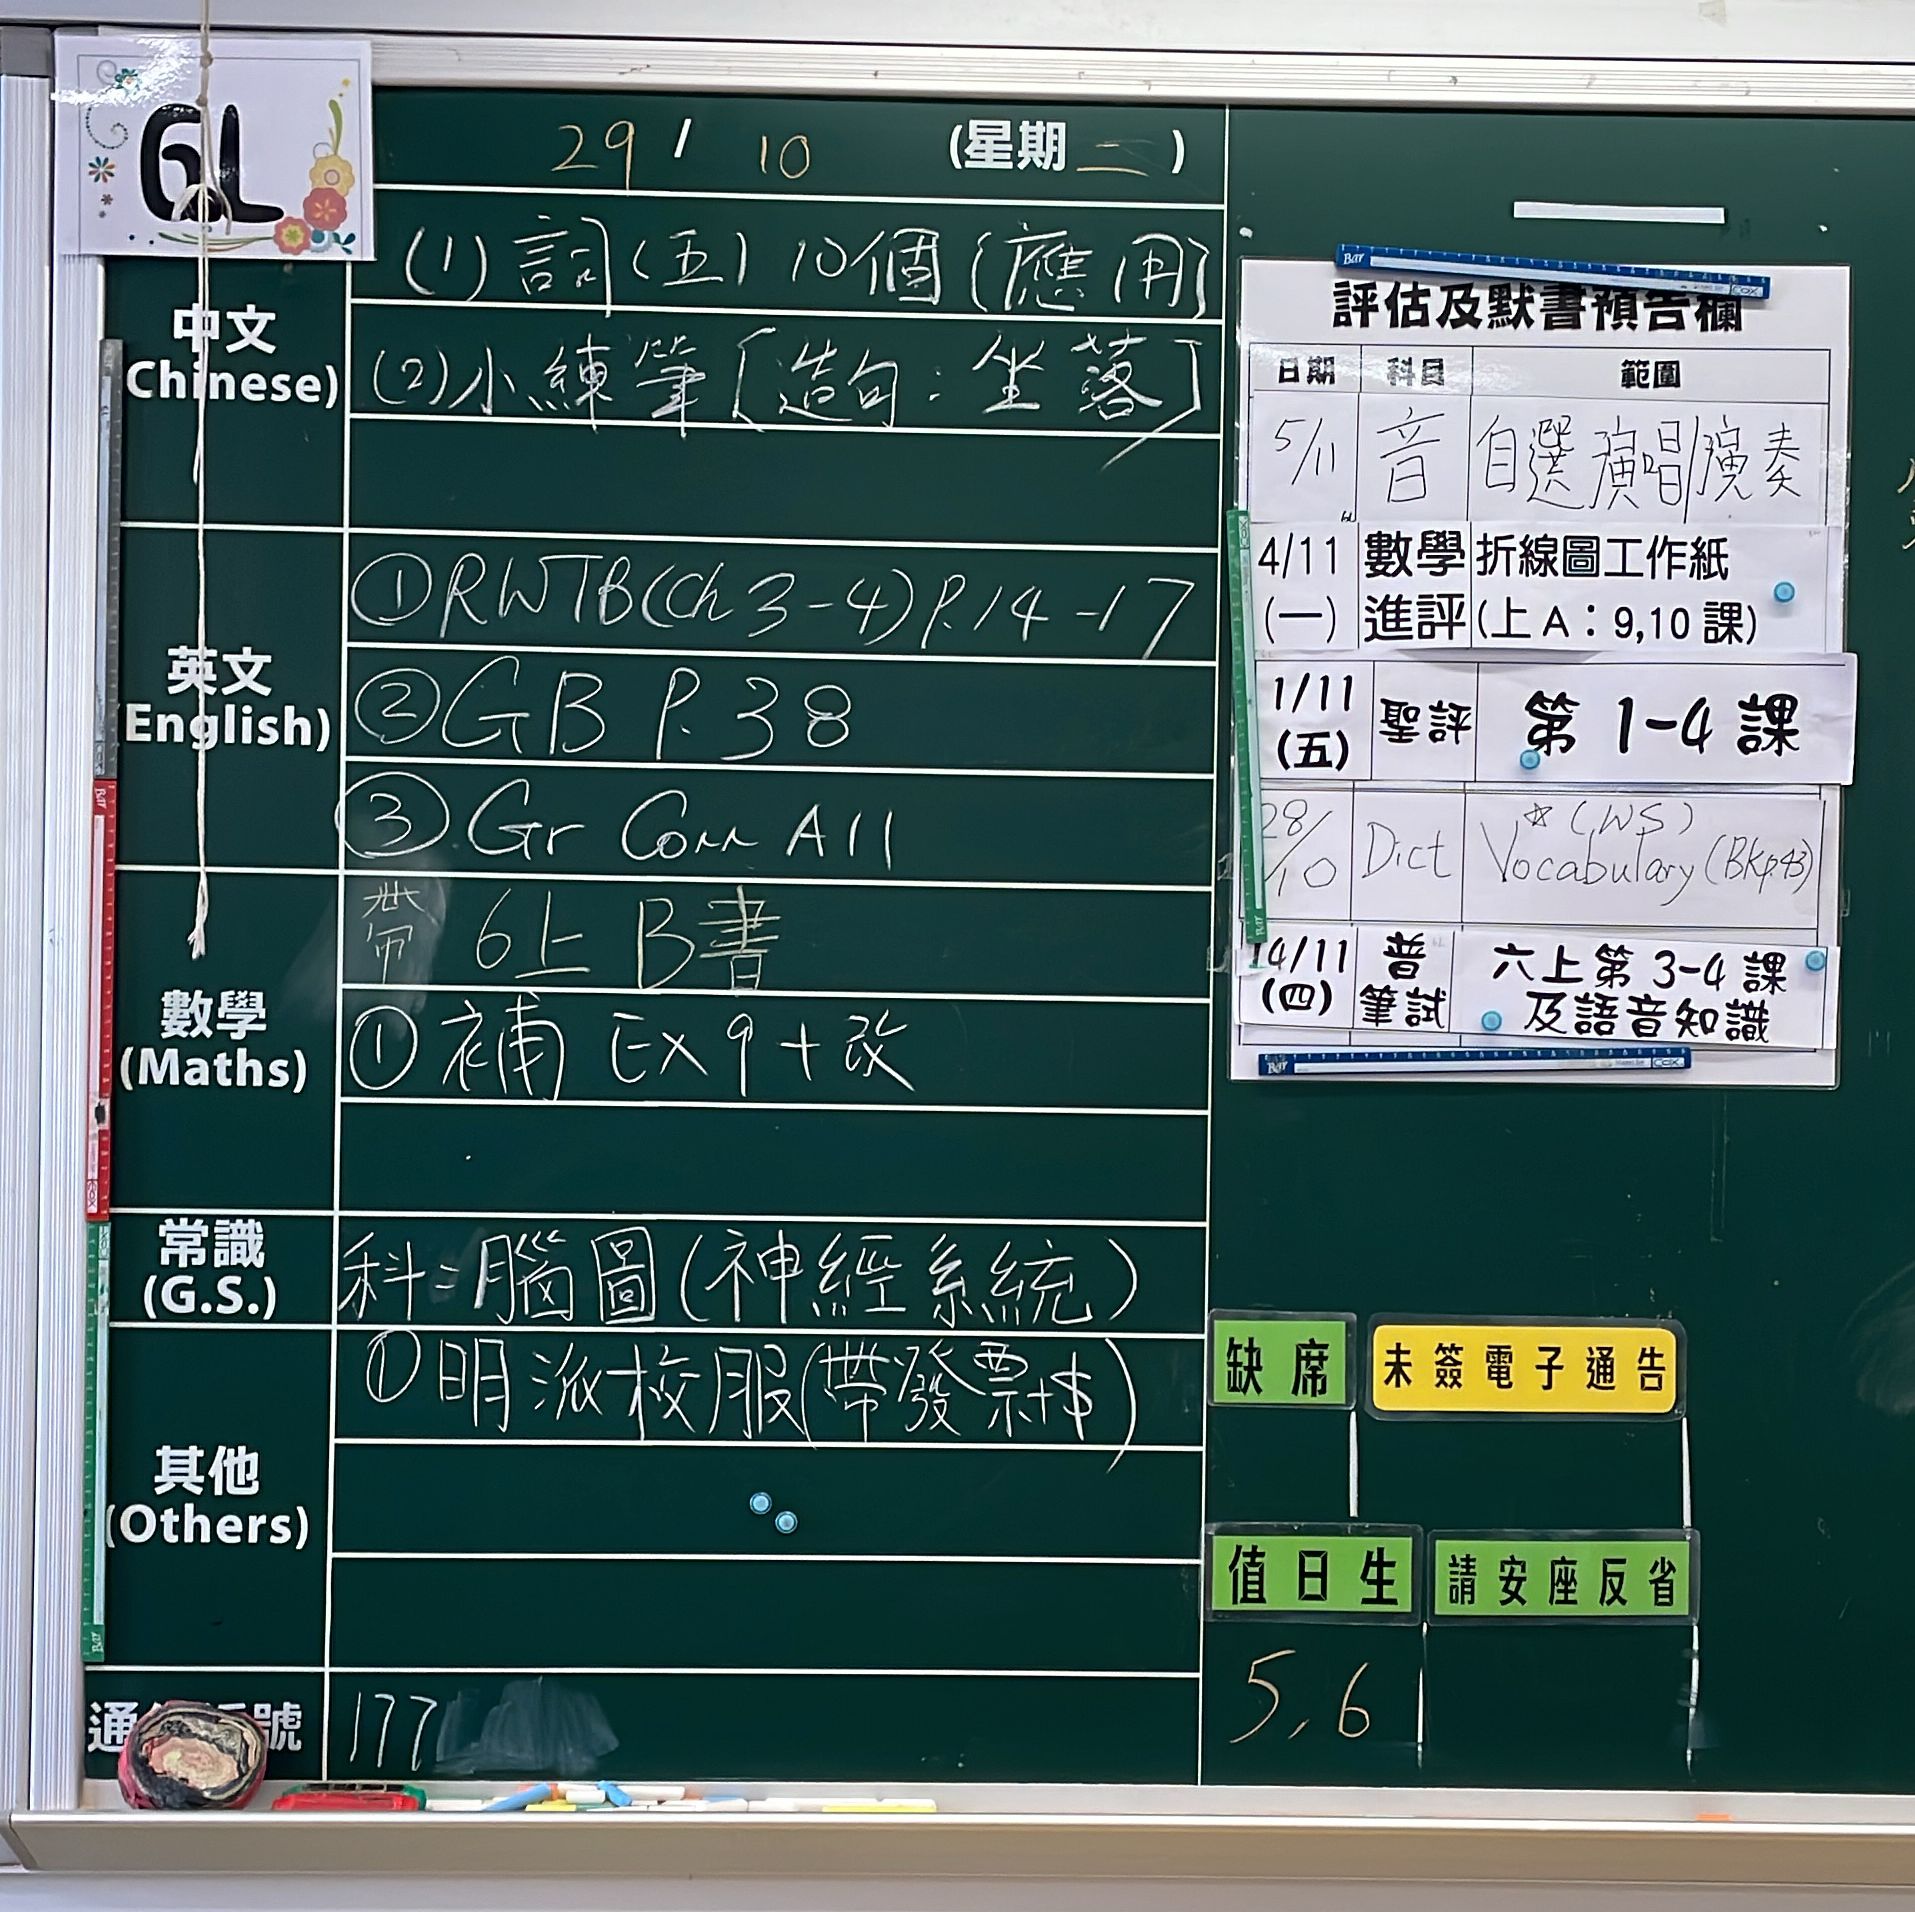 6L
29 / 10 (星期二)
中文
(Chinese)
(1) 詞(五) 10個 [應用]
(2) 小練筆 [造句：坐落]
英文
(English)
① RWTB (Ch 3-4) P.14-17
② GB P.38
③ Gr Corr All
數學
(Maths)
帶 6上 B書
① 補 Ex 9 + 改
常識
(G.S.)
科：腦圖 (神經系統)
其他
(Others)
① 明派校服 (帶發票+$)
通 號
177
評估及默書預告欄
日期 科目 範圍
5/11 音 自選演唱/演奏
4/11 數學 折線圖工作紙
(一) 進評 (上A：9,10課)
1/11 聖評 第1-4課
(五)
28/10 Dict *(WS)
Vocabulary (BKp.43)
14/11 普 六上第3-4課
(四) 筆試 及語音知識
缺席 未簽電子通告
值日生 請安座反省
5, 6